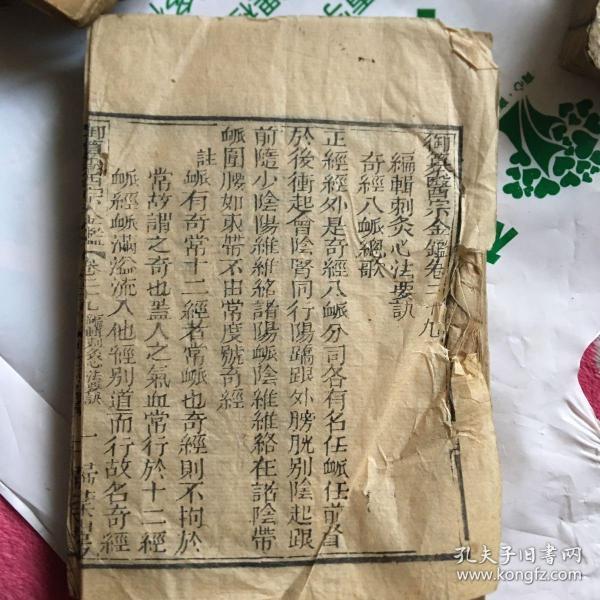 御纂醫宗金鑑卷二十九
編輯刺灸心法要訣
奇經八脈總歌
正經經外是奇經八脈分司各有名任脈任前督
於後衝起會陰腎同行陽蹻跟外膀胱別陰起跟
前隨少陰陽維維絡諸陽脈陰維維絡在諸陰帶
脈圍腰如束帶不由常度號奇經
註
脈有奇常十二經者常脈也奇經則不拘於
常故謂之奇也蓋人之氣血常行於十二經
脈經脈滿溢流入他經別道而行故名奇經
金鑑
卷
編輯刺灸心法要訣
一
孔夫子旧书网
www.kongfz.com